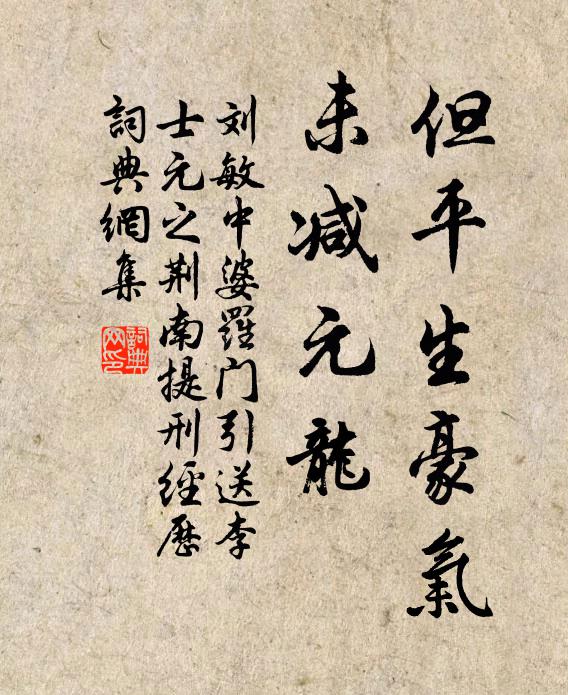 但平生豪氣
未减元龍
刘敏中婆羅门引送李
士元之荆南提刑經歷
詞典網集
詞典
网印